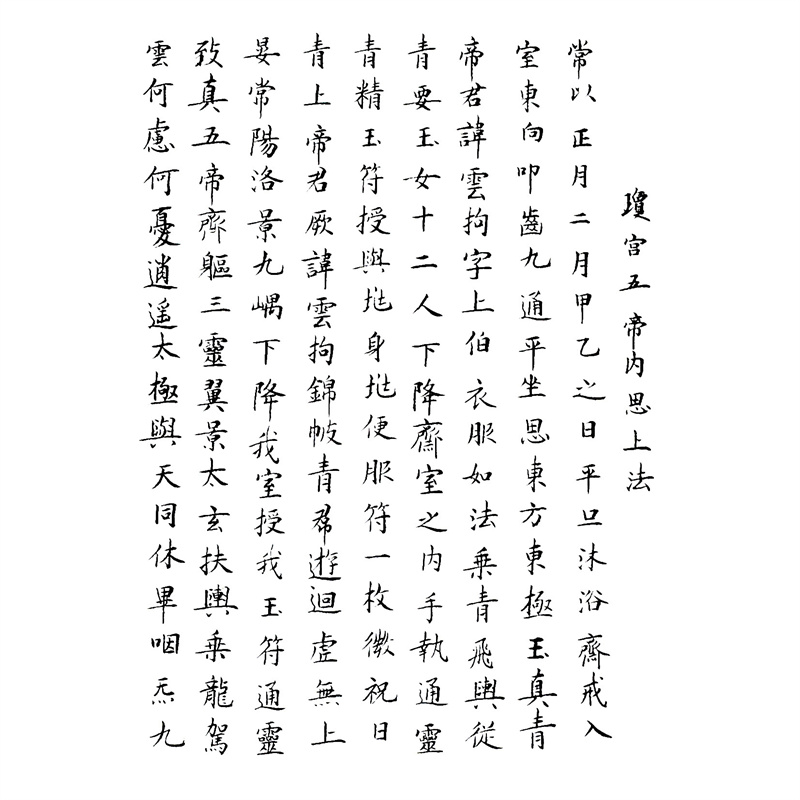 瓊宮五帝內思上法
常以正月二月甲乙之日平旦沐浴齋戒入
室東向叩齒九通平坐思東方東極玉真青
帝君諱雲拘字上伯衣服如法乘青飛輿從
青要玉女十二人下降齋室之內手執通靈
青精玉符授與垗身垗便服符一枚微祝曰
青上帝君厥諱雲拘錦帔青帬遊迴虛無上
晏常陽洛景九嵎下降我室授我玉符通靈
致真五帝齊軀三靈翼景太玄扶輿乘龍駕
雲何慮何憂逍遙太極與天同休畢咽炁九